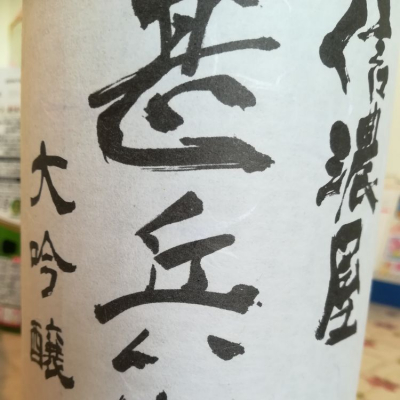 信濃屋
甚兵
大吟醸